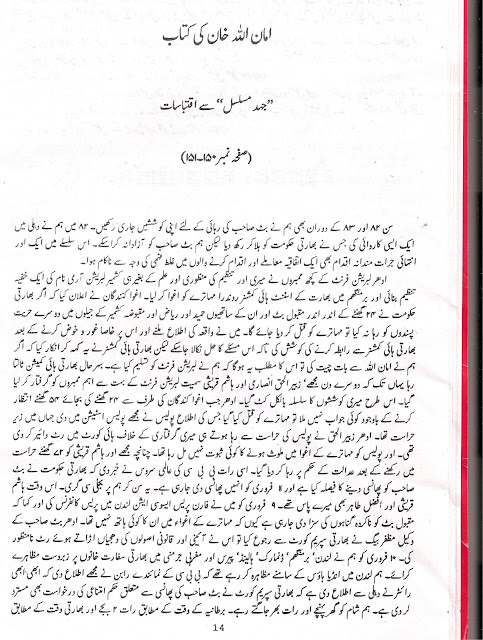 امان اللہ خان کی کتاب
”جہد مسلسل“ سے اقتباسات
(صفحہ نمبر ۱۵۰-۱۵۱)
سن ۸۲ اور ۸۳ کے دوران بھی ہم نے بٹ صاحب کی رہائی کے لئے اپنی کوششیں جاری رکھیں۔ ۸۲ میں ہم نے دہلی میں
ایک ایسی کاروائی کی جس نے بھارتی حکومت کو ہلا کر رکھ دیا لیکن ہم بٹ صاحب کو آزاد نہ کرا سکے۔ اس سلسلے میں ایک اور
انتہائی جرات مندانہ اقدام بھی ایک اتفاقیہ معاملے اور اقدام کرنے والوں میں غلط فہمی کی وجہ سے ناکام ہوا۔
ادھر لبریشن فرنٹ کے کچھ ممبروں نے میری اور تنظیم کی منظوری اور علم کے بغیر ہی کشمیر لبریشن آرمی نام کی ایک خفیہ
تنظیم بنائی اور برمنگھم میں بھارت کے اسسٹنٹ ہائی کمشنر روندرا مہاترے کو اغوا کر لیا۔ اغوا کنندگان نے اعلان کیا کہ اگر بھارتی
حکومت نے ۲۴ گھنٹے کے اندر اندر مقبول بٹ اور ان کے ساتھیوں حمید اور ریاض اور مقبوضہ کشمیر کے جیلوں میں دوسرے حریت
پسندوں کو رہا نہ کیا تو مہاترے کو قتل کر دیا جائے گا۔ میں نے واقعہ کی اطلاع ملنے اور اس پر خاصا غور و خوض کرنے کے بعد
بھارتی ہائی کمشنر سے رابطہ کرنے کی کوشش کی تاکہ اس مسئلے کا حل نکالا جا سکے لیکن بھارتی ہائی کمشنر نے یہ کہہ کر انکار کیا کہ اگر
ہم نے امان اللہ سے بات چیت کی تو اس کا مطلب یہ ہوگا کہ ہم نے لبریشن فرنٹ کو تسلیم کیا ہے۔ بہر حال بھارتی ہائی کمیشن ٹالتا
رہا یہاں تک کہ دوسرے دن مجھے زبیر الحق انصاری اور ہاشم قریشی سمیت لبریشن فرنٹ کے بہت سے اہم ممبروں کو گرفتار کر لیا
گیا۔ اس طرح میری کوششوں کا سلسلہ بالکل کٹ گیا۔ ادھر جب اغوا کنندگان کی طرف سے ۲۴ گھنٹے کی بجائے ۵۳ گھنٹے انتظار
کرنے کے باوجود کوئی جواب نہیں ملا تو مہاترے کو قتل کیا گیا جس کی اطلاع پولیس نے مجھے پولیس اسٹیشن میں دی جہاں میں زیر
حراست تھا۔ ادھر زبیر الحق نے پولیس کی حراست سے رہا ہوتے ہی میری گرفتاری کے خلاف ہائی کورٹ میں رٹ دائر کر دی
تھی۔ اور پولیس کو مہاترے کے اغوا میں ملوث ہونے کا کوئی ثبوت نہیں مل رہا تھا۔ چنانچہ مجھے اور ہاشم قریشی کو ۷۲ گھنٹے حراست
میں رکھنے کے بعد عدالت کے حکم پر رہا کر دیا گیا۔ اسی رات بی بی سی کی عالمی سروس نے خبر دی کہ بھارتی حکومت نے بٹ
صاحب کو پھانسی دینے کا فیصلہ کیا ہے اور ۱۱ فروری کو انہیں پھانسی دی جا رہی ہے۔ یہ سن کر ہم پر بجلی سی گری۔ اس وقت ہاشم
قریشی اور افضل طاہر بھی میرے پاس تھے۔ ۹ فروری کو میں نے فارن پریس ایسوسی ایشن لندن میں پریس کانفرنس کی اور کہا کہ
مقبول بٹ کو ناکردہ گناہوں کی سزا دی جا رہی ہے کیوں کہ مہاترے کے اغواء میں ان کا کوئی ہاتھ نہیں تھا۔ ادھر بٹ صاحب کے
وکیل مظفر بیگ نے بھارتی سپریم کورٹ سے رجوع کیا تو اس نے آئینی اور قانونی اصولوں کی دھجیاں اڑاتے ہوئے رٹ نامنظور
کی۔ ۱۰ فروری کو ہم نے لندن‘ برمنگھم‘ ڈنمارک‘ ہالینڈ‘ پیرس اور مغربی جرمنی میں بھارتی سفارت خانوں پر زبردست مظاہرے
کرائے۔ ہم لندن میں انڈیا ہاؤس کے سامنے مظاہرہ کر رہے تھے کہ بی بی سی کے نمائندے رابن نے مجھے اطلاع دی کہ ابھی ابھی
رائٹر نے دہلی سے اطلاع دی ہے کہ بھارتی سپریم کورٹ نے بٹ صاحب کی پھانسی سے متعلق حکم امتناعی کی درخواست بھی مسترد
کر دی ہے۔ ہم شام کو گھر پہنچے اور رات بھر جاگتے رہے۔ برطانیہ کے وقت کے مطابق رات ۲ بجے اور بھارتی وقت کے مطابق
14